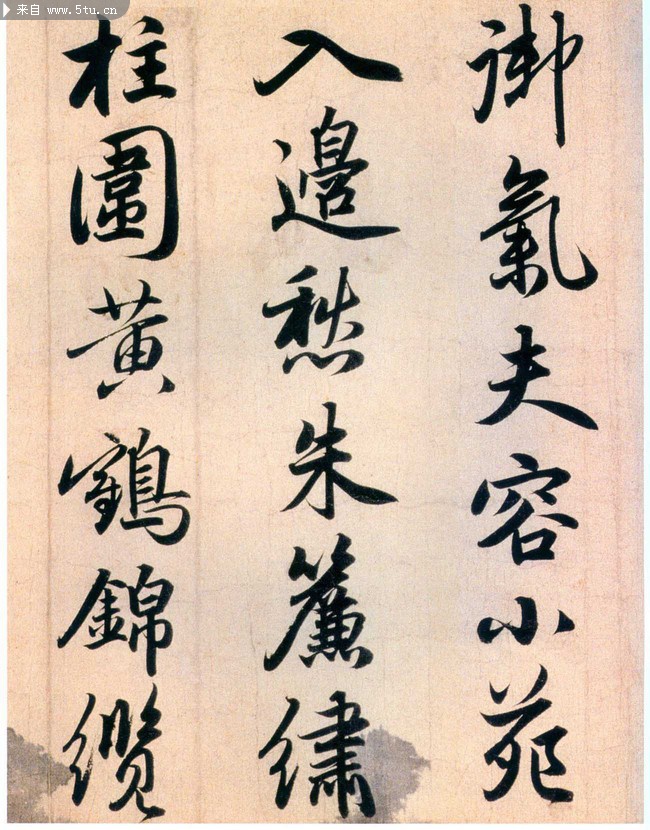 来自 www.5tu.cn
御氣夫容小苑
入邊愁朱簾繡
柱圍黃鶴錦纜